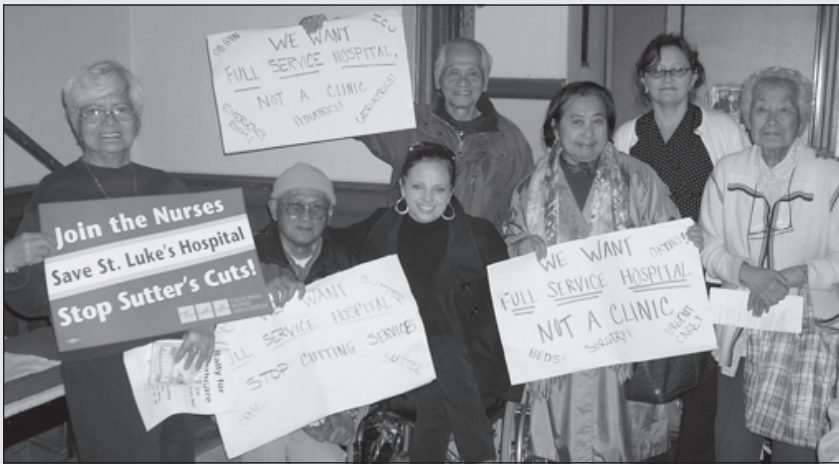 OBGYN
ICU
WE WANT
FULL SERVICE HOSPITAL,
NOT A CLINIC
EMERGENCY
ROOM!
PEDIATRICS!
GERIATRICS!
Join the Nurses
Save St. Luke's Hospital
Stop Sutter's Cuts!
CNA
CALIFORNIA
NURSES
ASSOCIATION
Rally for
WANT
SUTTER
SERVICE HOSPITAL
STOP CUTTING SERVICES
SUTTER
WE WANT
ORTHO!
FULL SERVICE HOSPITAL
NOT A CLINIC
BEDS!
SURGERY!
URGENT
CARE!